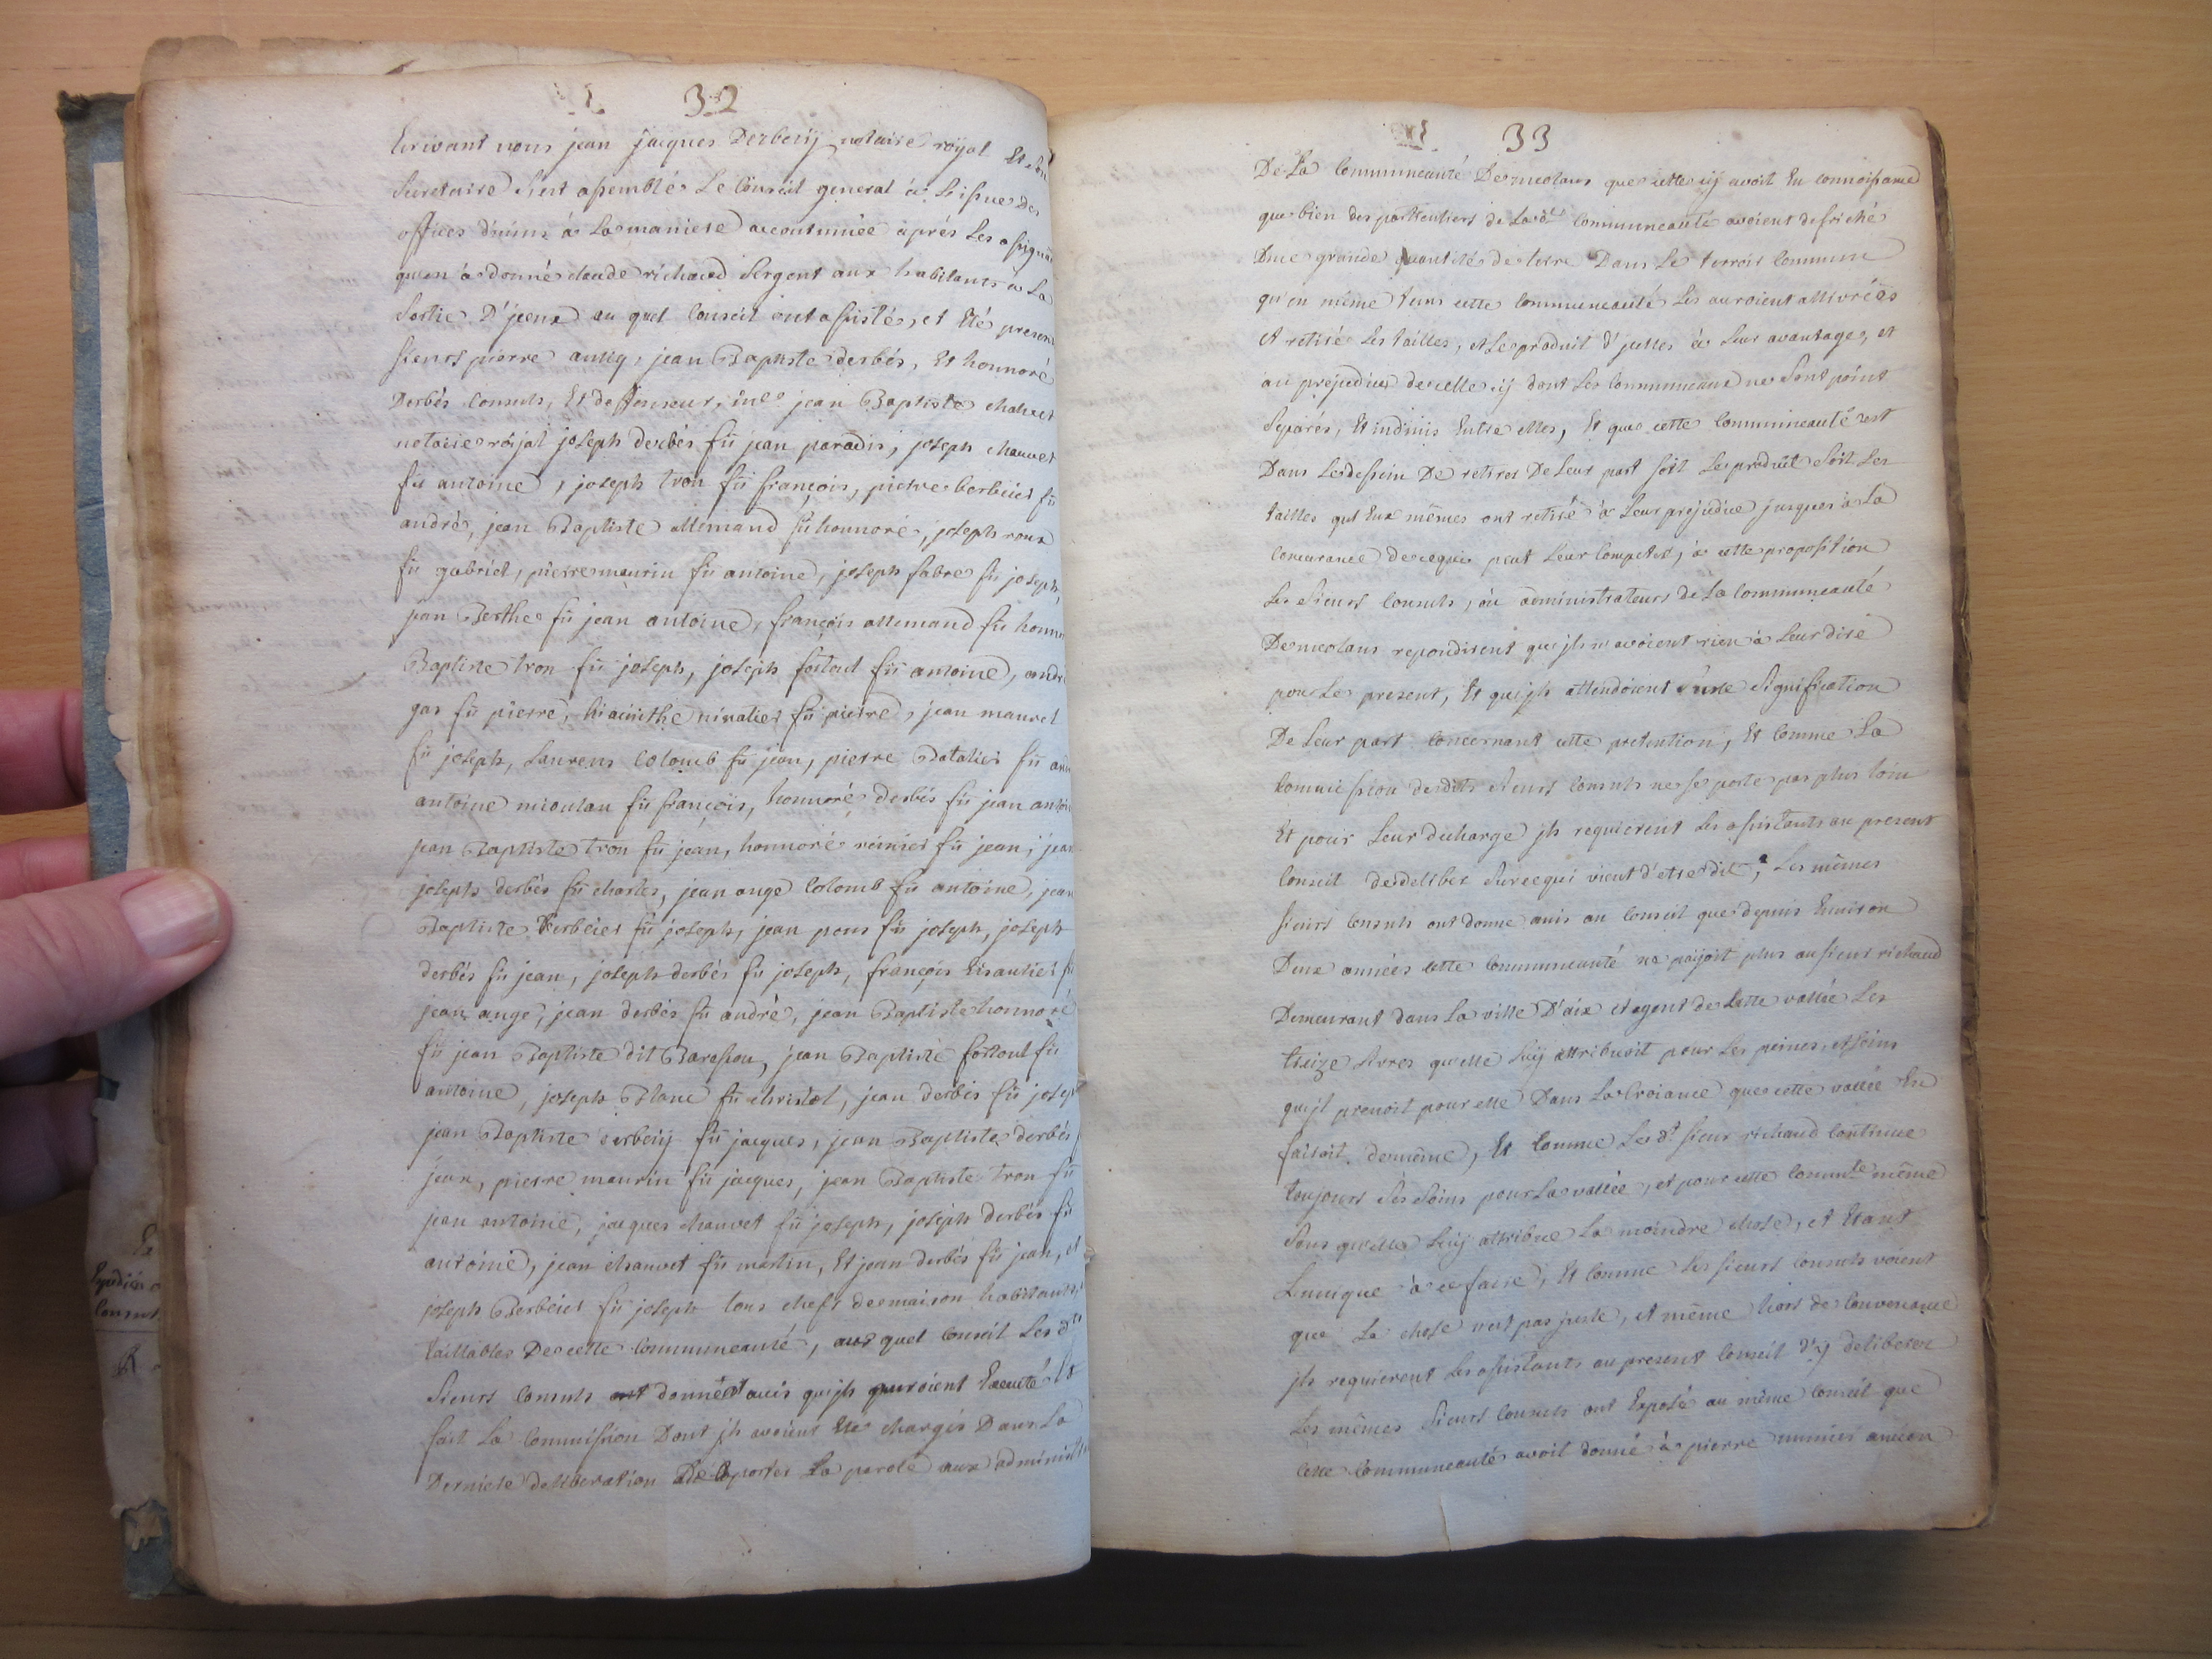 32
Ecrivant nous jean jacques Derbezÿ notaire röyal Et son
Secretaire s'est assemblé Le Conseil general à L'issue Des
offices divins à La maniere accoutumée après Les assignãõ
qu'en à donné claude richaud sergent aux habitants à La
Sortie D'jceux au quel Conseil ont assisté, et Eté presens
sieurs pierre jean Baptiste derbés, Et honnoré
Derbés Consuls, Et deffenseur, me jean Baptiste chauvet
notaire röjal joseph derbés fü jean paradis, joseph chauvet
fü antoine, joseph tron fü françois, pierre berbeier fü
andré, jean Baptiste allemand fü honnoré, joseph roux
fü gabriel, pierre maurin fü antoine, joseph fabre fü joseph,
jean Berthe fü jean antoine, françois allemand fü honno
Baptiste tron fü joseph, joseph fortoul fü antoine, andr
gas fü pierre, hiacinthe fü pierre, jean maurel
fü joseph, Laurens Colomb fü jean, pierre Batalier fü an
antoine micoulau fü françois, honnoré derbés fü jean antoi
jean Baptiste tron fü jean, honnoré fü jean, jean
joseph derbés fü charles, jean ange Colomb fü antoine, jean
Baptiste Berbeier fü joseph, jean pons fü joseph, joseph
derbés fü jean, joseph derbés fü joseph, françois Eisautier fü
jean ange, jean derbés fü andré, jean Baptiste honnoré
fü jean Baptiste dit jean Baptiste fortoul fü
antoine, joseph Blanc fü christol, jean derbés fü josep
jean Baptiste derbezÿ fü jacques, jean Baptiste derbés
jean, pierre maurin fü jacques, jean Baptiste tron fü
jean antoine, jacques chauvet fü joseph, joseph derbés fü
antoine, jean chauvet fü martin, Et jean derbés fü jean, et
joseph Berbeier fü joseph tous chefs de maison habitants,
taillables De cette Communeauté, au quel Conseil Les dts
Sieurs Consuls ont donné avis qu'jls auroient Executé Et
fait La Commission Dont jls avoient Eté chargés Dans La
Derniere deliberation De porter La parole aux administra
33
De La Communeauté De meolans que cette cÿ avoit Eu connoissance
que bien des particuliers de La de Communeauté avoient defriché
Dune grande quantité de terre Dans Le terroir Commun
qu'en même tems cette Communeauté Les auroient allivrées
et retiré Les tailles, et Le produit d'jcelles à Leur avantage, et
au prejudice de celle cÿ dont Les Communeaux ne Sont point
Separés, Et indivis Entre elles, Et que cette Communeauté est
Dans Le dessein De retirer De Leur part soit Le produit Soit Les
tailles qu'Eux mêmes ont retiré à Leur prejudice jusques à La
Concurance de ce qui peut Leur Competer, à cette proposition
Les Sieurs Consuls, ou administrateurs de La Communeauté
De meolans repondirent qu'jls n'avoient rien à Leur dire
pour Le present, Et qu'jls attendoient une Signification
De Leur part concernant cette pretention, Et Comme La
Commission desdits Sieurs Consuls ne se porte pas plus loin
Et pour Leur decharge jls requierent Les assistants au present
Conseil de deliberer Sur ce qui vient d'etre dit, Les mêmes
sieurs Consuls ont donné avis au Conseil que depuis Environ
Deux années cette Communeauté ne païoit plus au sieur richaud
Demeurant dans La ville D'aix et agent de Cette vallée Les
treize Livres qu'elle Luÿ attribuoit pour Les peines, et soins
qu'jl prenoit pour elle Dans La Croiance que cette vallée En
faisoit de même, Et Comme Le dt sieur richaud Continue
toujours Ses Soins pour La vallée, et pour cette Commte même
Sans qu'elle Luÿ attribue La moindre chose, et Etant
L'unique à ce faire, Et Comme Les sieurs Consuls voient
que La chose n'est pas juste, et même hors de Convenance
jls requierent Les assistants au present Conseil d'y deliberer
Les mêmes Sieurs Consuls ont Exposé au même Conseil que
Cette Communeauté avoit donné à pierre ancien